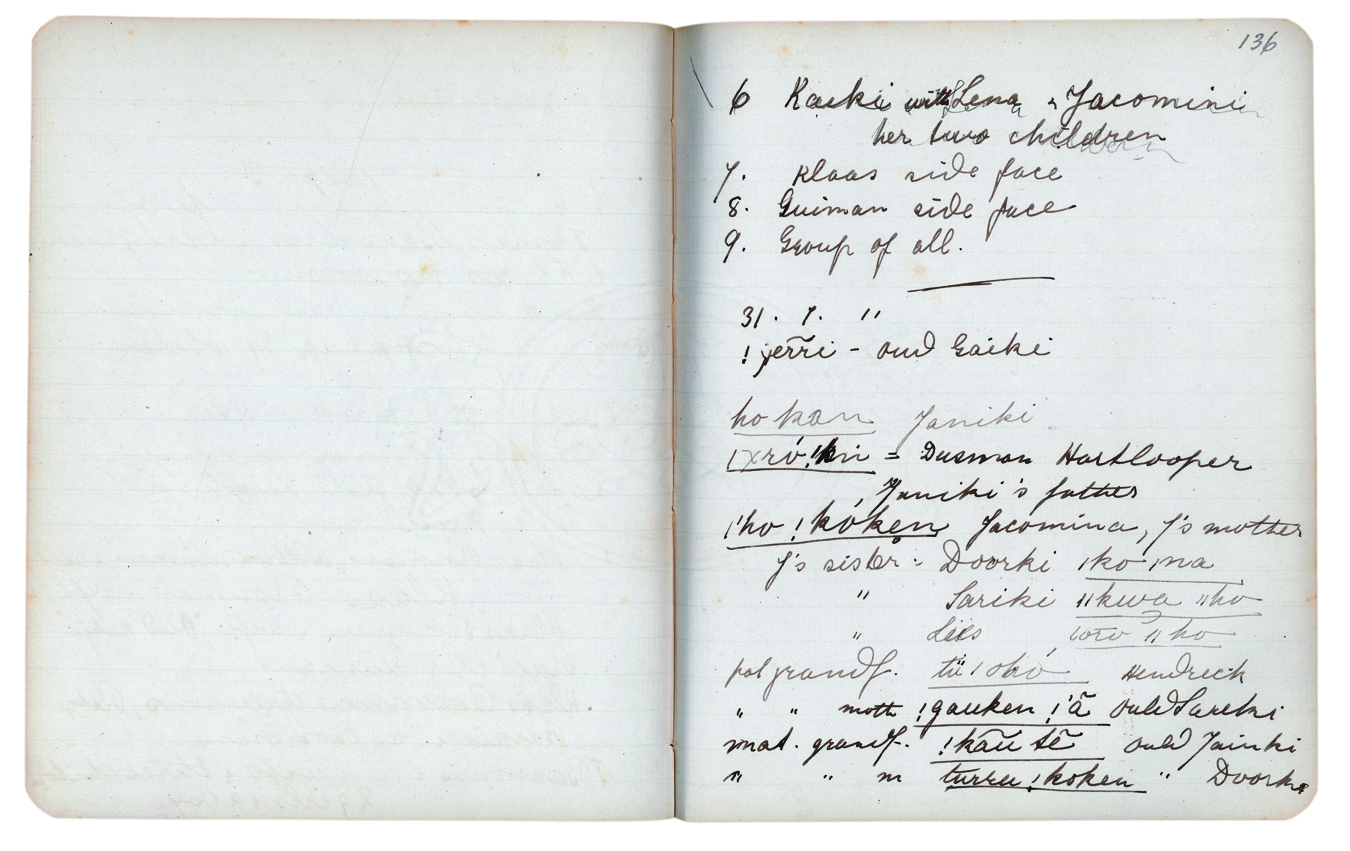 136
6 Kaeki with Lena & Jacomini
her two children
7. Klaas side face
8. Guiman side face
9. Group of all.
31. 7. "
! jerri - oud Gaiki
ho kan Janiki
ǀxró!kn = Dusman Hartlooper
Janiki's father
ǀ'ho !kóken Jacomina, J's mother
J's sister: Doorki ǀko ǀna
" Sariki ǁkwa ǁho
" Lies ǁho
pat grandf. Hendrick
" " moth !gauken !'ã ould Sariki
mat. grandf. !kãu tẽ ould Jainki
" " m turru !koken " Doorki